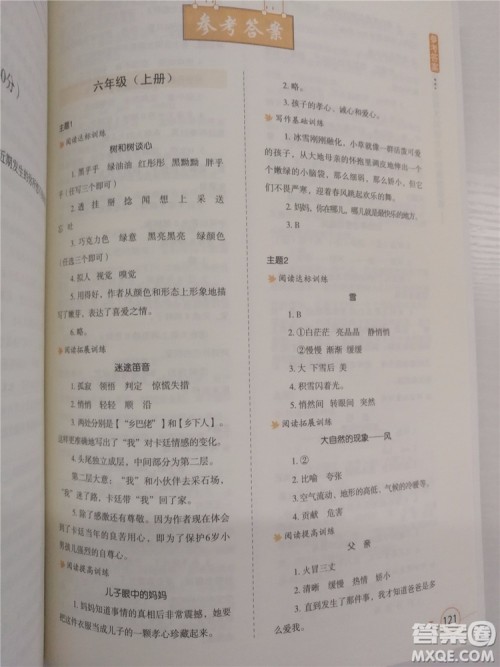 参考答案
参考答案
六年级（上册）
主题1
阅读达标训练
树和树谈心
1. 黑乎乎 绿油油 红彤彤 黑黝黝 胖乎
乎（任写三个即可）
3. 巧克力色 绿意 黑亮黑亮 绿颜色
（任选三个即可）
4. 拟人 视觉 嗅觉
5. 用得好，作者从颜色和形态上形象地描
写了嫩芽，表达了喜爱之情。
6. 略。
阅读拓展训练
迷途笛音
1. 孤寂 领悟 判定 惊慌失措
2. 悄悄 轻轻 顺 沿
3. 两处分别是【“乡巴佬”】和【乡下人】。
这样更准确地写出了“我”对卡廷情感的变化。
4. 头尾独立成层，中间部分为第二层。
第二层大意：“我”和小伙伴去采石场，
“我”迷了路，卡廷带“我”回了家。
5. 除了感激还有尊敬。因为作者现在体会
到了卡廷当年的良苦用心，为了保护6岁小
男孩儿强烈的自尊心。
阅读提高训练
儿子眼中的妈妈
1. 妈妈知道事情的真相后非常震撼，她要
把这件衣服当成儿子的一颗孝心珍藏起来。
2. 略。
3. 孩子的孝心、诚心和爱心。
写作基础训练
1. 冰雪刚刚融化，小草就像一群活蹦乱跳
的孩子，从大地母亲的怀抱里调皮地伸出一个
个嫩绿的小脑袋，那么细弱，那么娇小，但它
们不畏严寒，迎着春风跳起欢乐的舞。
2. 妈妈，你在哪儿，哪儿就是最快乐的地方。
3. B
主题2
阅读达标训练
雪
1. B
2. ①白茫茫 亮晶晶 静悄悄
②慢慢 渐渐 缓缓
3. 大 下雪后 美
4. 积雪闪着光。
5. 悄然间 转眼间 突然
阅读拓展训练
大自然的现象——风
1. ②
2. 比喻 夸张
3. 空气流动，地形的高低、气候的冷暖等。
4. 贡献 危害
阅读提高训练
父亲
1. 火冒三丈
2. 清晰 缓慢 热情 娇小
3. 直到发生了那件事，我才知道爸爸是多
么爱我。
121
答案圈
MXQE.COM